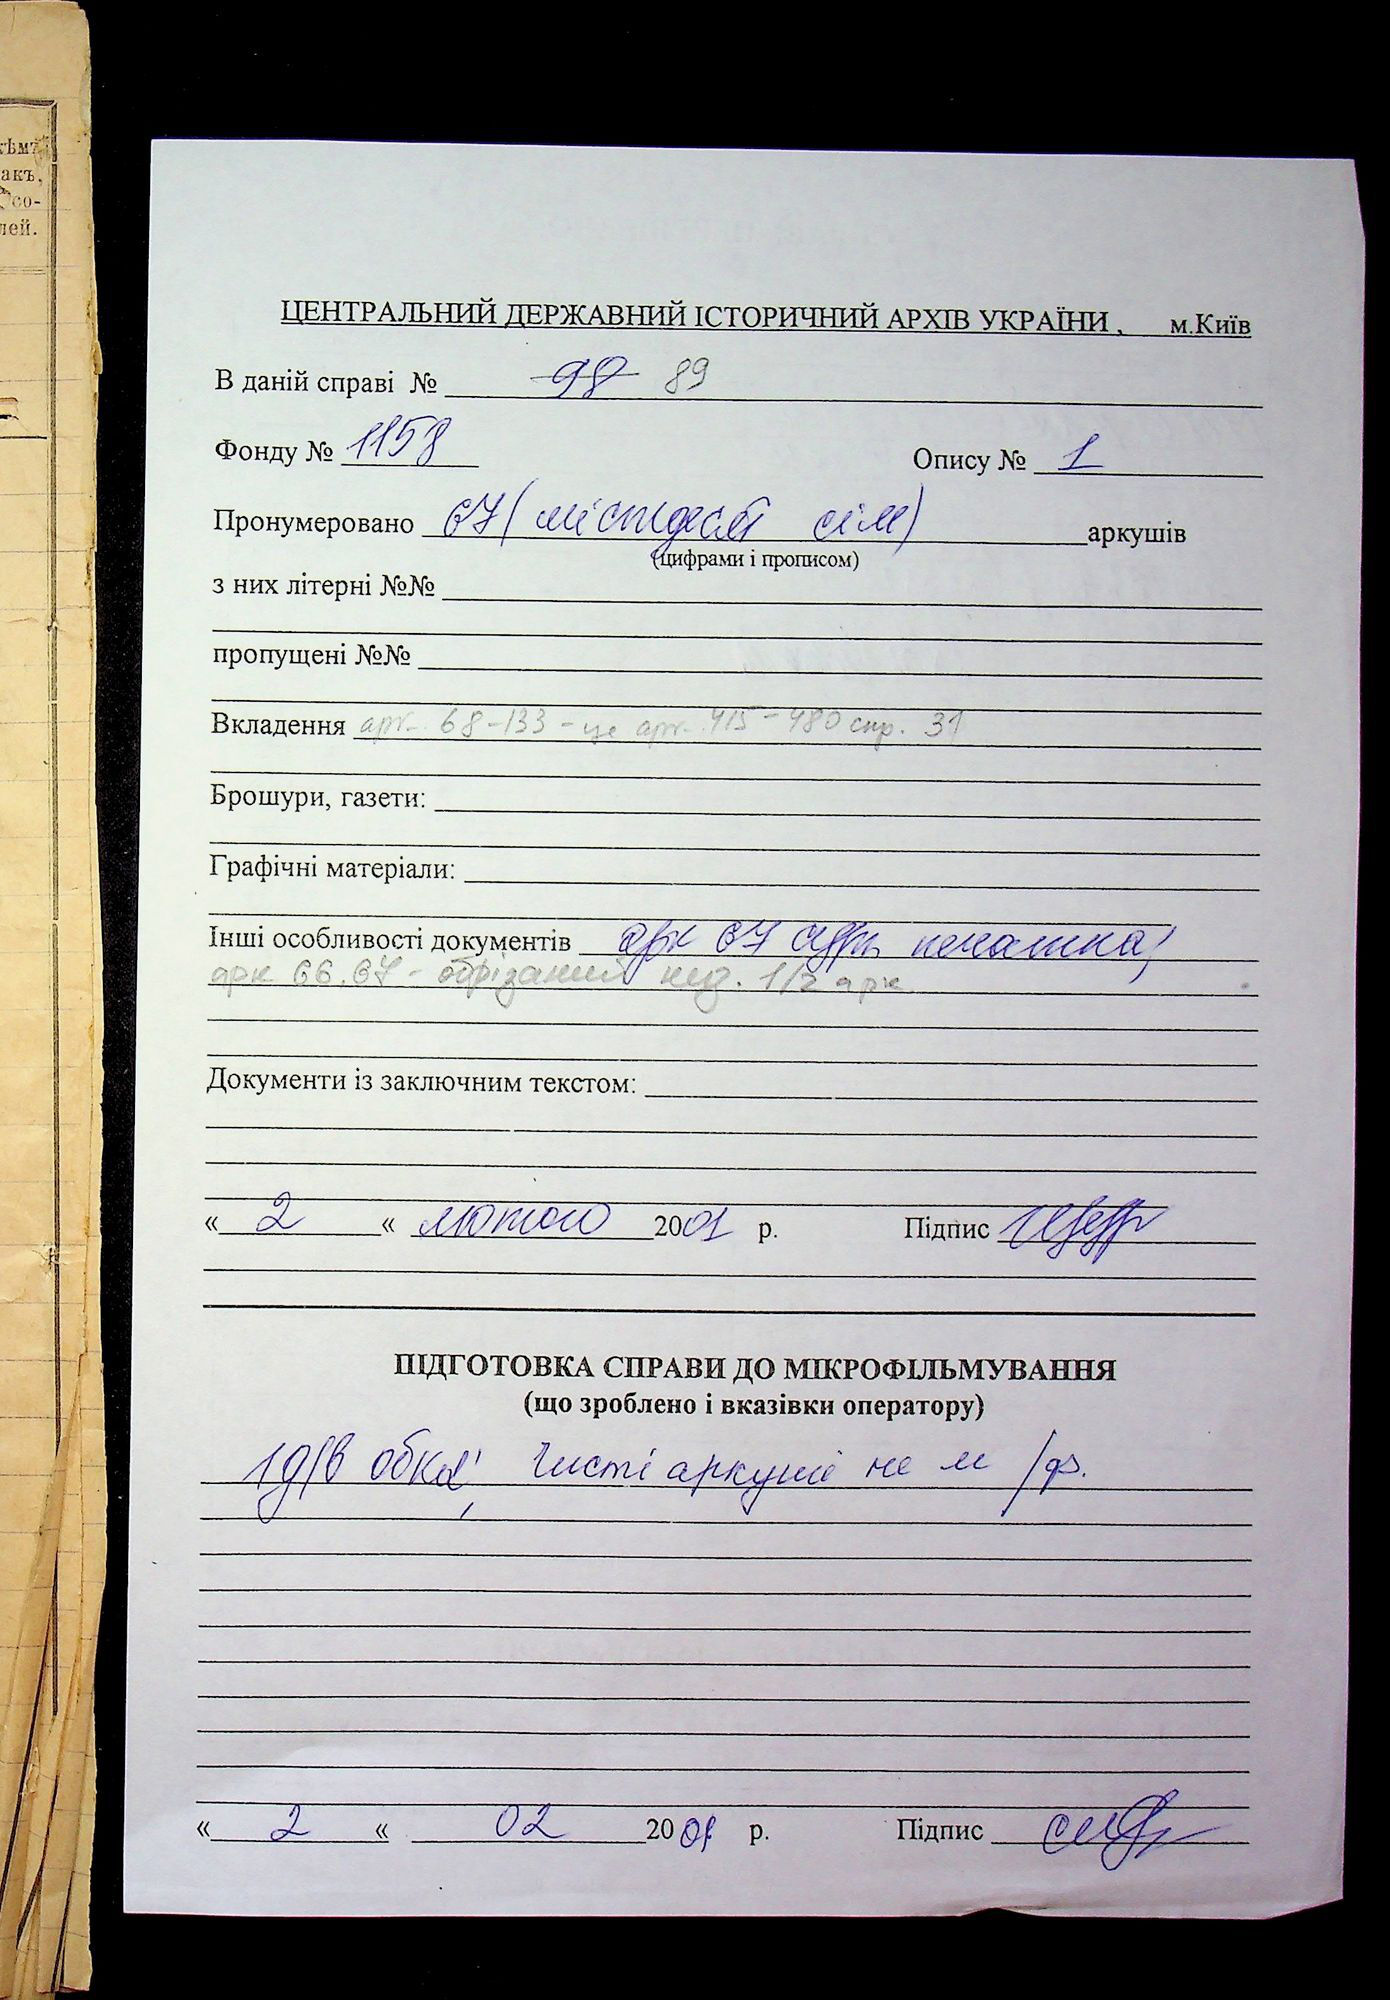 кѣмъ
акъ,
со-
лей.
ЦЕНТРАЛЬНИЙ ДЕРЖАВНИЙ ІСТОРИЧНИЙ АРХІВ УКРАЇНИ , м.Київ
В даній справі № 98 89
Фонду № 1158 Опису № 1
Пронумеровано 67 ( шістдесят сім) аркушів
(цифрами і прописом)
з них літерні №№
пропущені №№
Вкладення арк. 68-133 - це арк. 415-480 спр. 31
Брошури, газети:
Графічні матеріали:
Інші особливості документів арк 67 печатка;
арк 66.67 - обрізаний 1/2 арк
Документи із заключним текстом:
« 2 « лютого 2001 р. Підпис
ПІДГОТОВКА СПРАВИ ДО МІКРОФІЛЬМУВАННЯ
(що зроблено і вказівки оператору)
Чисті аркуші не м/ф.
« 2 « 02 2001 р. Підпис